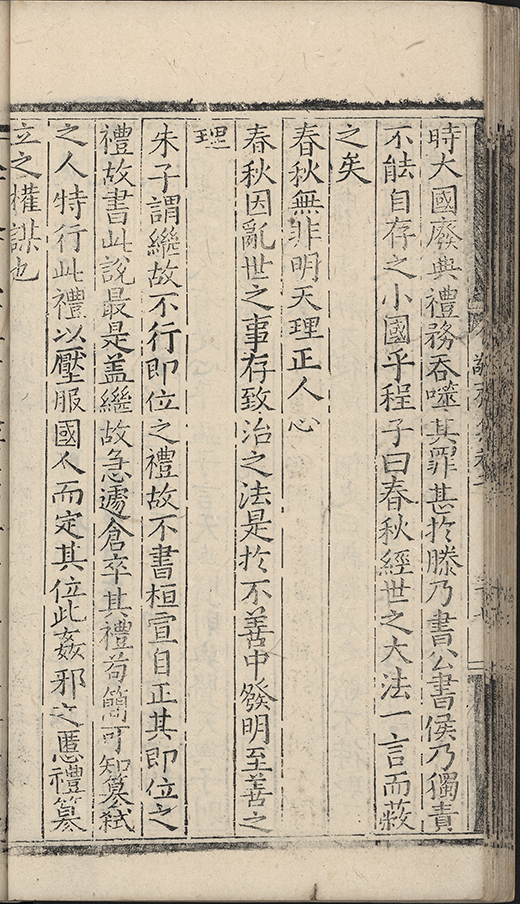 時大國廢典禮務吞噬其罪甚於滕乃書公書侯乃獨責
不能自存之小國乎程子曰春秋經世之大法一言而蔽
之矣
春秋無非明天理正人心
春秋因亂世之事存致治之法是於不善中發明至善之
理
朱子謂繼故不行即位之禮故不書桓宣自正其即位之
禮故書此說最是盖繼故急遽倉卒其禮苟簡可知簒弒
之人特行此禮以壓服國人而定其位此姦邪之慝禮簒
立之權謀也